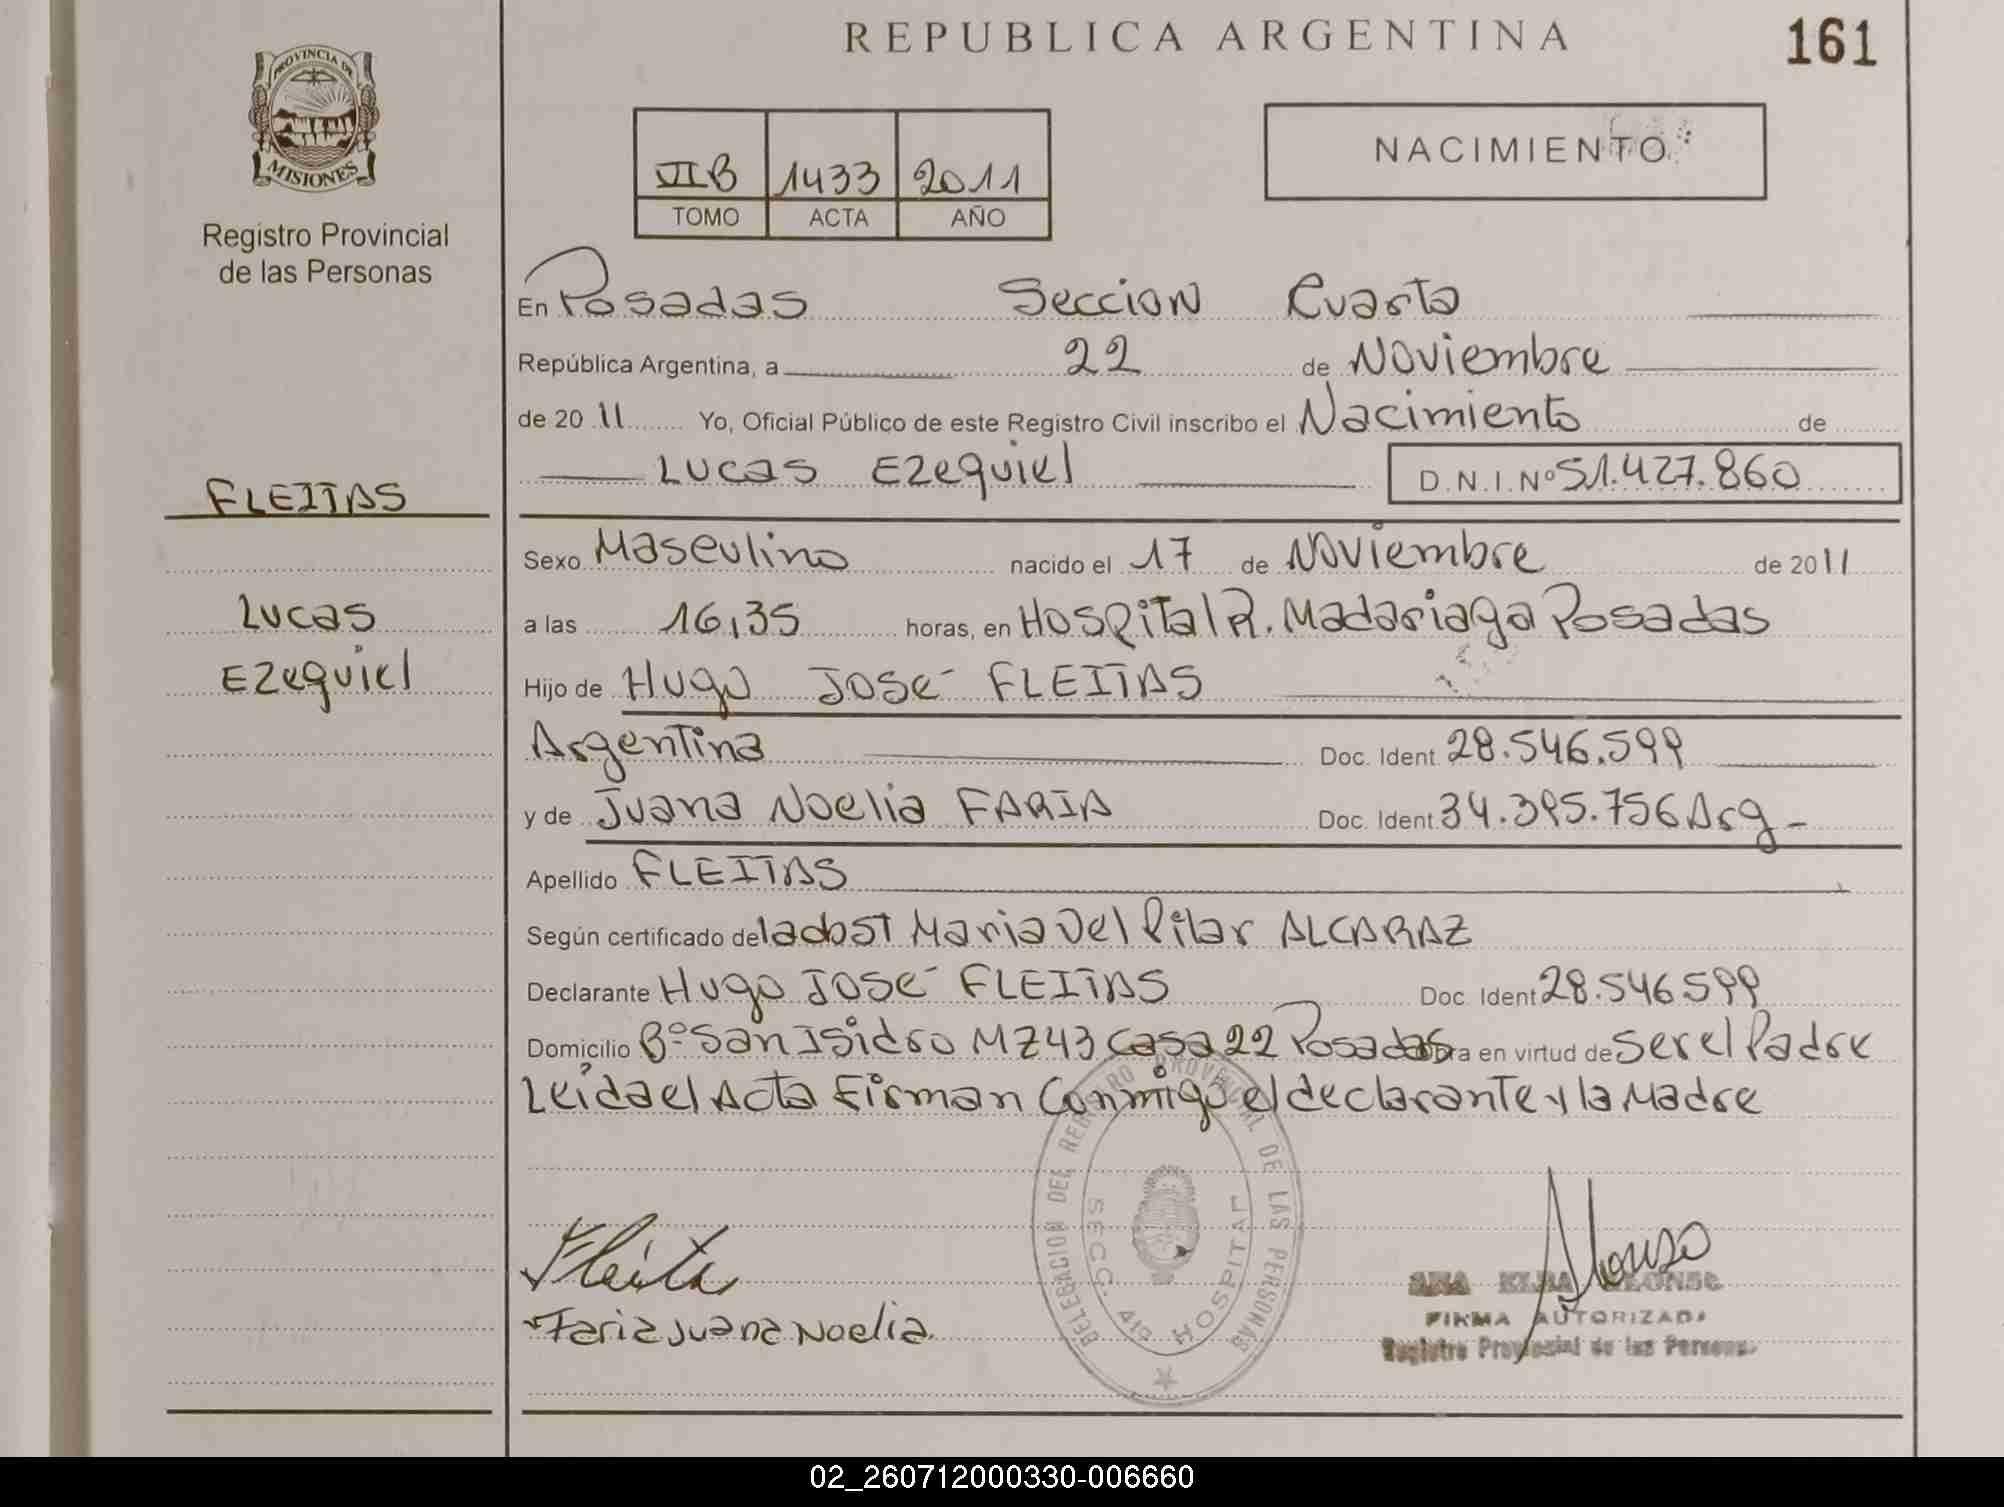 REPUBLICA ARGENTINA
161
PROVINCIA DE
MISIONES
Registro Provincial
de las Personas
VII B 1433 2011
TOMO ACTA AÑO
NACIMIENTO
En Posadas Seccion Cuarta
República Argentina, a 22 de Noviembre
de 20 11 Yo, Oficial Público de este Registro Civil inscribo el Nacimiento de
Lucas Ezequiel D.N.I.Nº 51.427.860
FLEITAS
Sexo Masculino nacido el 17 de Noviembre de 2011
Lucas
a las 16,35 horas, en Hospital R. Madariaga Posadas
Ezequiel
Hijo de Hugo José FLEITAS
Argentina Doc. Ident. 28.546.599
y de Juana Noelia FARIA Doc. Ident. 34.395.756 Arg -
Apellido FLEITAS
Según certificado de la obst Maria Del Pilar ALCARAZ
Declarante Hugo José FLEITAS Doc. Ident 28.546.599
Domicilio Bº San Isidro MZ 43 Casa 22 Posadas obra en virtud de ser el Padre
Leída el Acta Firman Conmigo el declarante y la Madre
DELEGACION DEL REGISTRO PROVINCIAL DE LAS PERSONAS
SECC. 4ta HOSPITAL
Faria Juana Noelia.
Alonso
ANA ALONSO
FIRMA AUTORIZADA
Registro Provincial de las Personas
02_260712000330-006660